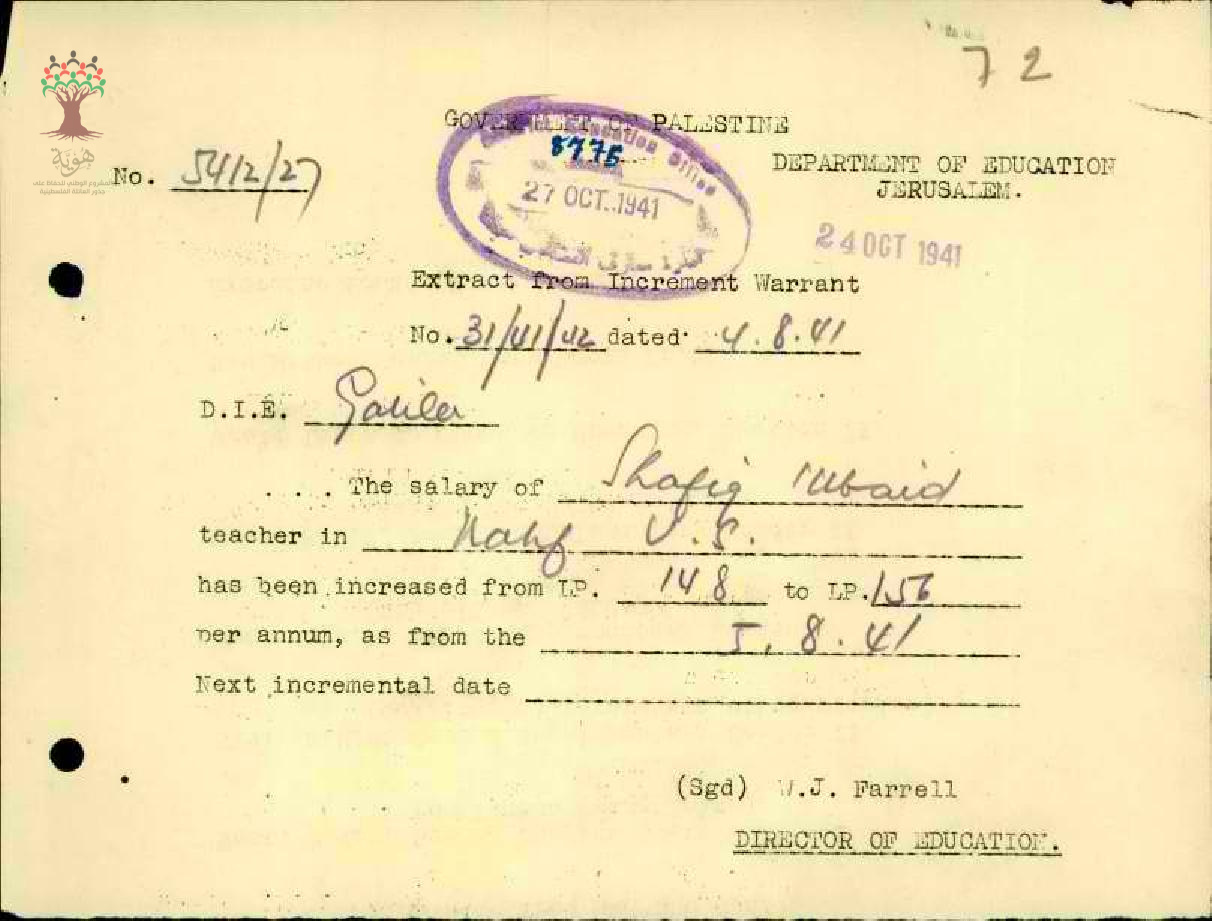 72
GOVERNMENT OF PALESTINE
8775
Education Office
27 OCT. 1941
هوية
المشروع الوطني للحفاظ على
جذور العائلة الفلسطينية
No. 5412/27
DEPARTMENT OF EDUCATION
JERUSALEM.
24 OCT 1941
Extract from Increment Warrant
No. 31/41/42 dated 4.8.41
D.I.E. Galilee
. . . The salary of Shafiq Ubaid
teacher in Nahf V.S.
has been increased from LP. 148 to LP. 156
per annum, as from the 5.8.41
Next incremental date
(Sgd) W.J. Farrell
DIRECTOR OF EDUCATION.